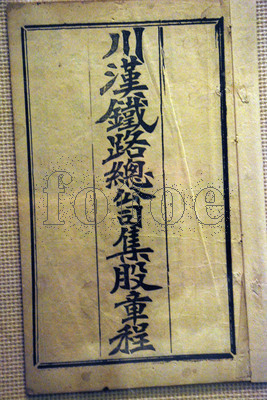 川漢鐵路總公司集股章程
fotoe